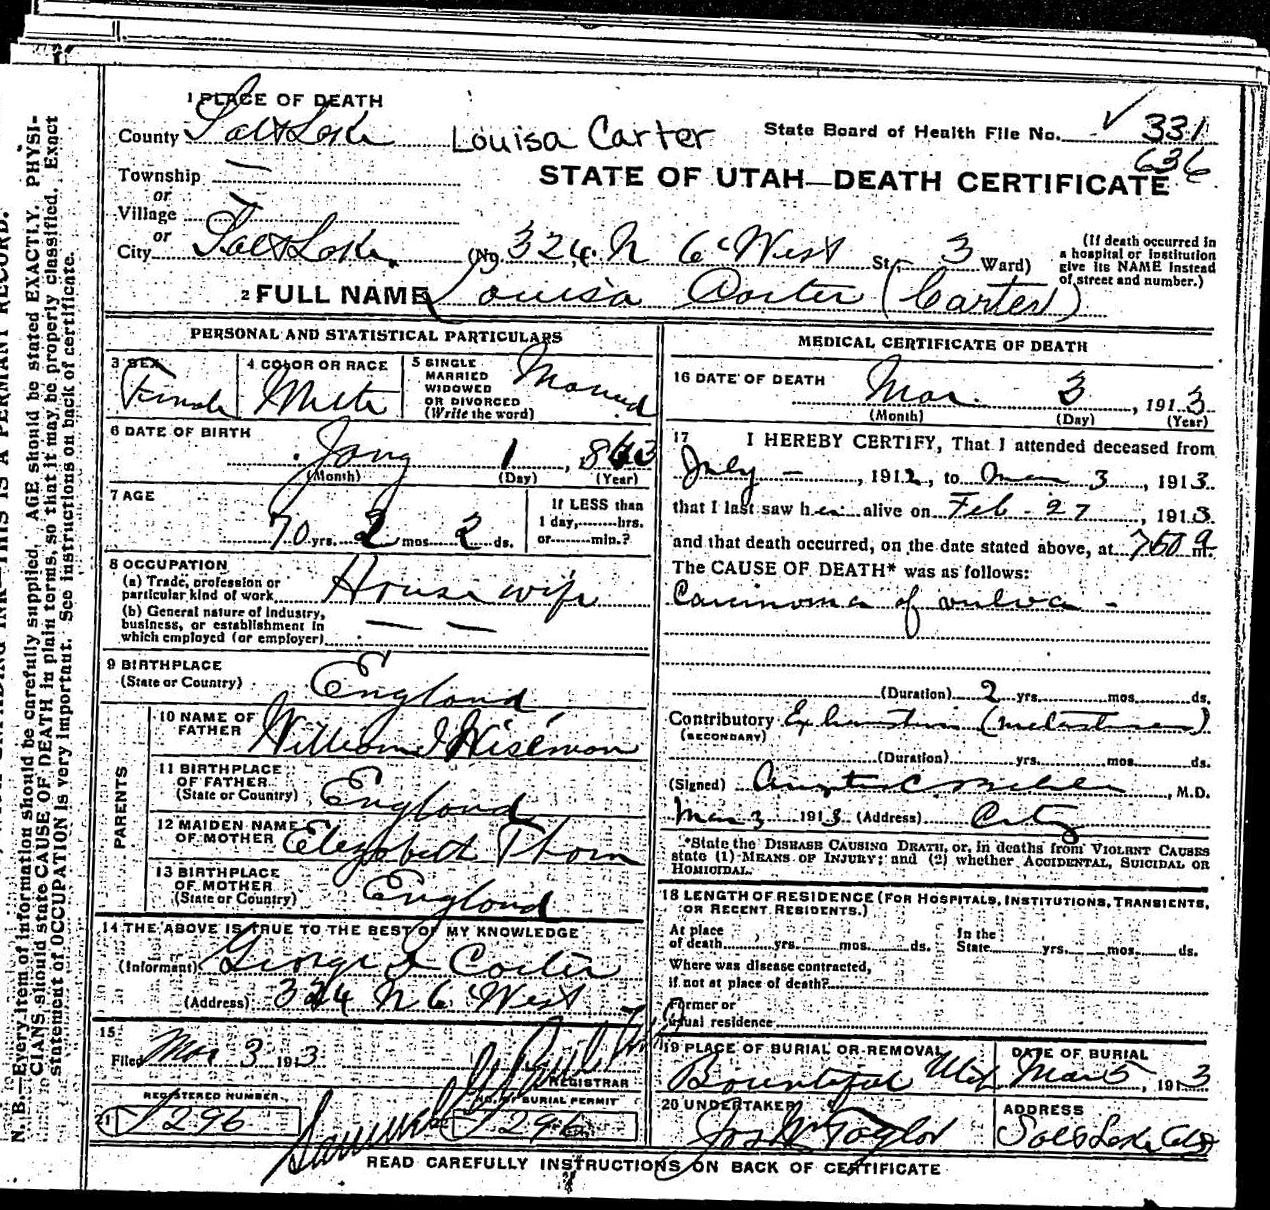 1 PLACE OF DEATH
County Salt Lake Louisa Carter State Board of Health File No. ✓ 331
636
Township —
or
Village
or
City Salt Lake. (No 324 N 6 West St; 3 Ward) (If death occurred in a hospital or institution give its NAME instead of street and number.)
STATE OF UTAH—DEATH CERTIFICATE
2 FULL NAME Louisa Carter (Carter)
PERSONAL AND STATISTICAL PARTICULARS
3 SEX Female
4 COLOR OR RACE White
5 SINGLE MARRIED WIDOWED OR DIVORCED (Write the word) Married
6 DATE OF BIRTH
Jany 1, 1843
(Month) (Day) (Year)
7 AGE
70 yrs. 2 mos 2 ds.
If LESS than 1 day,........hrs. or........min.?
8 OCCUPATION
(a) Trade, profession or particular kind of work House wife
(b) General nature of industry, business, or establishment in which employed (or employer) — —
9 BIRTHPLACE
(State or Country) England
PARENTS
10 NAME OF FATHER William Wiseman
11 BIRTHPLACE OF FATHER (State or Country) England
12 MAIDEN NAME OF MOTHER Elizabeth Thorn
13 BIRTHPLACE OF MOTHER (State or Country) England
14 THE ABOVE IS TRUE TO THE BEST OF MY KNOWLEDGE
(Informant) George Carter
(Address) 324 N 6 West
15
Filed Mar 3 1913
REGISTRAR
REGISTERED NUMBER
21 J 296
NO. OF BURIAL PERMIT
J 296
MEDICAL CERTIFICATE OF DEATH
16 DATE OF DEATH
Mar. 3, 1913
(Month) (Day) (Year)
17 I HEREBY CERTIFY, That I attended deceased from
July —, 1912, to Mar 3, 1913
that I last saw her alive on Feb - 27, 1913
and that death occurred, on the date stated above, at 750 a m.
The CAUSE OF DEATH* was as follows:
Carcinoma of vulva -
(Duration) 2 yrs. mos. ds.
Contributory Exhaustion (metastases)
(SECONDARY)
(Duration) yrs. mos. ds.
(Signed) M.D.
Mar 3 1913 (Address) City
*State the DISEASE CAUSING DEATH, or, in deaths from VIOLENT CAUSES
state (1) MEANS OF INJURY; and (2) whether ACCIDENTAL, SUICIDAL OR
HOMICIDAL.
18 LENGTH OF RESIDENCE (FOR HOSPITALS, INSTITUTIONS, TRANSIENTS,
OR RECENT RESIDENTS.)
At place of death yrs. mos. ds. In the State yrs. mos. ds.
Where was disease contracted,
if not at place of death?
Former or
usual residence
19 PLACE OF BURIAL OR REMOVAL
Bountiful Utah
DATE OF BURIAL
Mar 5, 1913
20 UNDERTAKER
Jos Wm Taylor
ADDRESS
Salt Lake City
READ CAREFULLY INSTRUCTIONS ON BACK OF CERTIFICATE
THIS IS A PERMANT RECORD.
N. B.—Every item of information should be carefully supplied. AGE should be stated EXACTLY. PHYSI-
CIANS should state CAUSE OF DEATH in plain terms, so that it may be properly classified. Exact
statement of OCCUPATION is very important. See instructions on back of certificate.